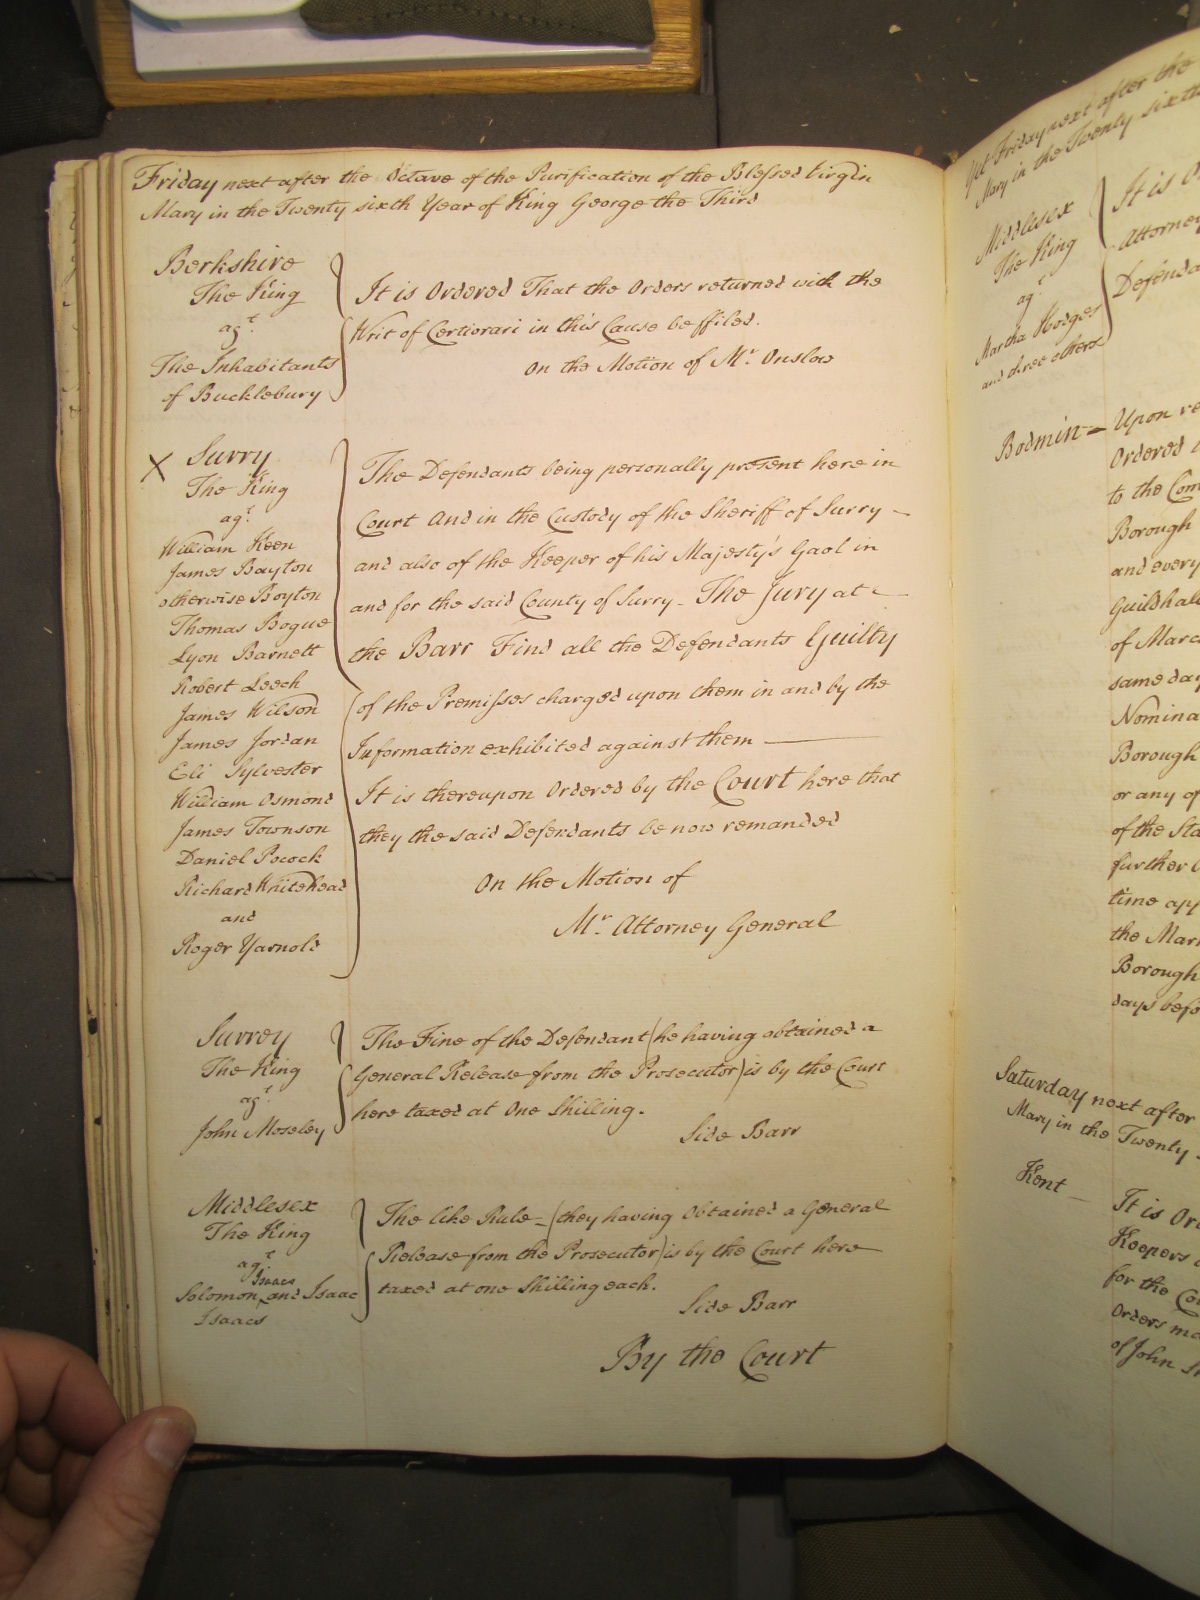 Friday next after the Octave of the Purification of the Blessed Virgin
Mary in the Twenty sixth Year of King George the Third
Berkshire
The King
agt.
The Inhabitants
of Bucklebury
It is Ordered That the Orders returned with the
Writ of Certiorari in this Cause be ffiled.
On the Motion of Mr. Onslow
X Surry
The King
agt.
William Keen
James Bayton
otherwise Boyton
Thomas Bogue
Lyon Barnett
Robert Leech
James Wilson
James Jordan
Eli Sylvester
William Osmond
James Townson
Daniel Pocock
Richard Whitehead
and
Roger Yarnold
The Defendants being personally present here in
Court And in the Custody of the Sheriff of Surry -
and also of the Keeper of his Majesty's Gaol in
and for the said County of Surry - The Jury at
the Barr Find all the Defendants Guilty
of the Premisses charged upon them in and by the
Information exhibited against them
It is thereupon Ordered by the Court here that
they the said Defendants be now remanded
On the Motion of
Mr. Attorney General
Surrey
The King
agt.
John Moseley
The Fine of the Defendant (he having obtained a
General Release from the Prosecutor) is by the Court
here taxed at One Shilling.
Side Barr
Middlesex
The King
agt.
Isaacs
Solomon ^ and Isaac
Isaacs
The like Rule - (they having Obtained a General
Release from the Prosecutor) is by the Court here
taxed at one Shilling each.
Side Barr
By the Court
Yet Friday next after the
Mary in the Twenty sixth
Middlesex
The King
agt.
Martha Hodges
and three others
It is
Attorney
Defenda
Bodmin - Upon re
Ordered
to the Com
Borough
and every
Guildhal
of Marc
same day
Nomina
Borough
or any of
of the Sta
further
time app
the Mar
Borough
days befo
Saturday next after
Mary in the Twenty
Kent -
It is Or
Keepers
for the Co
Orders ma
of John